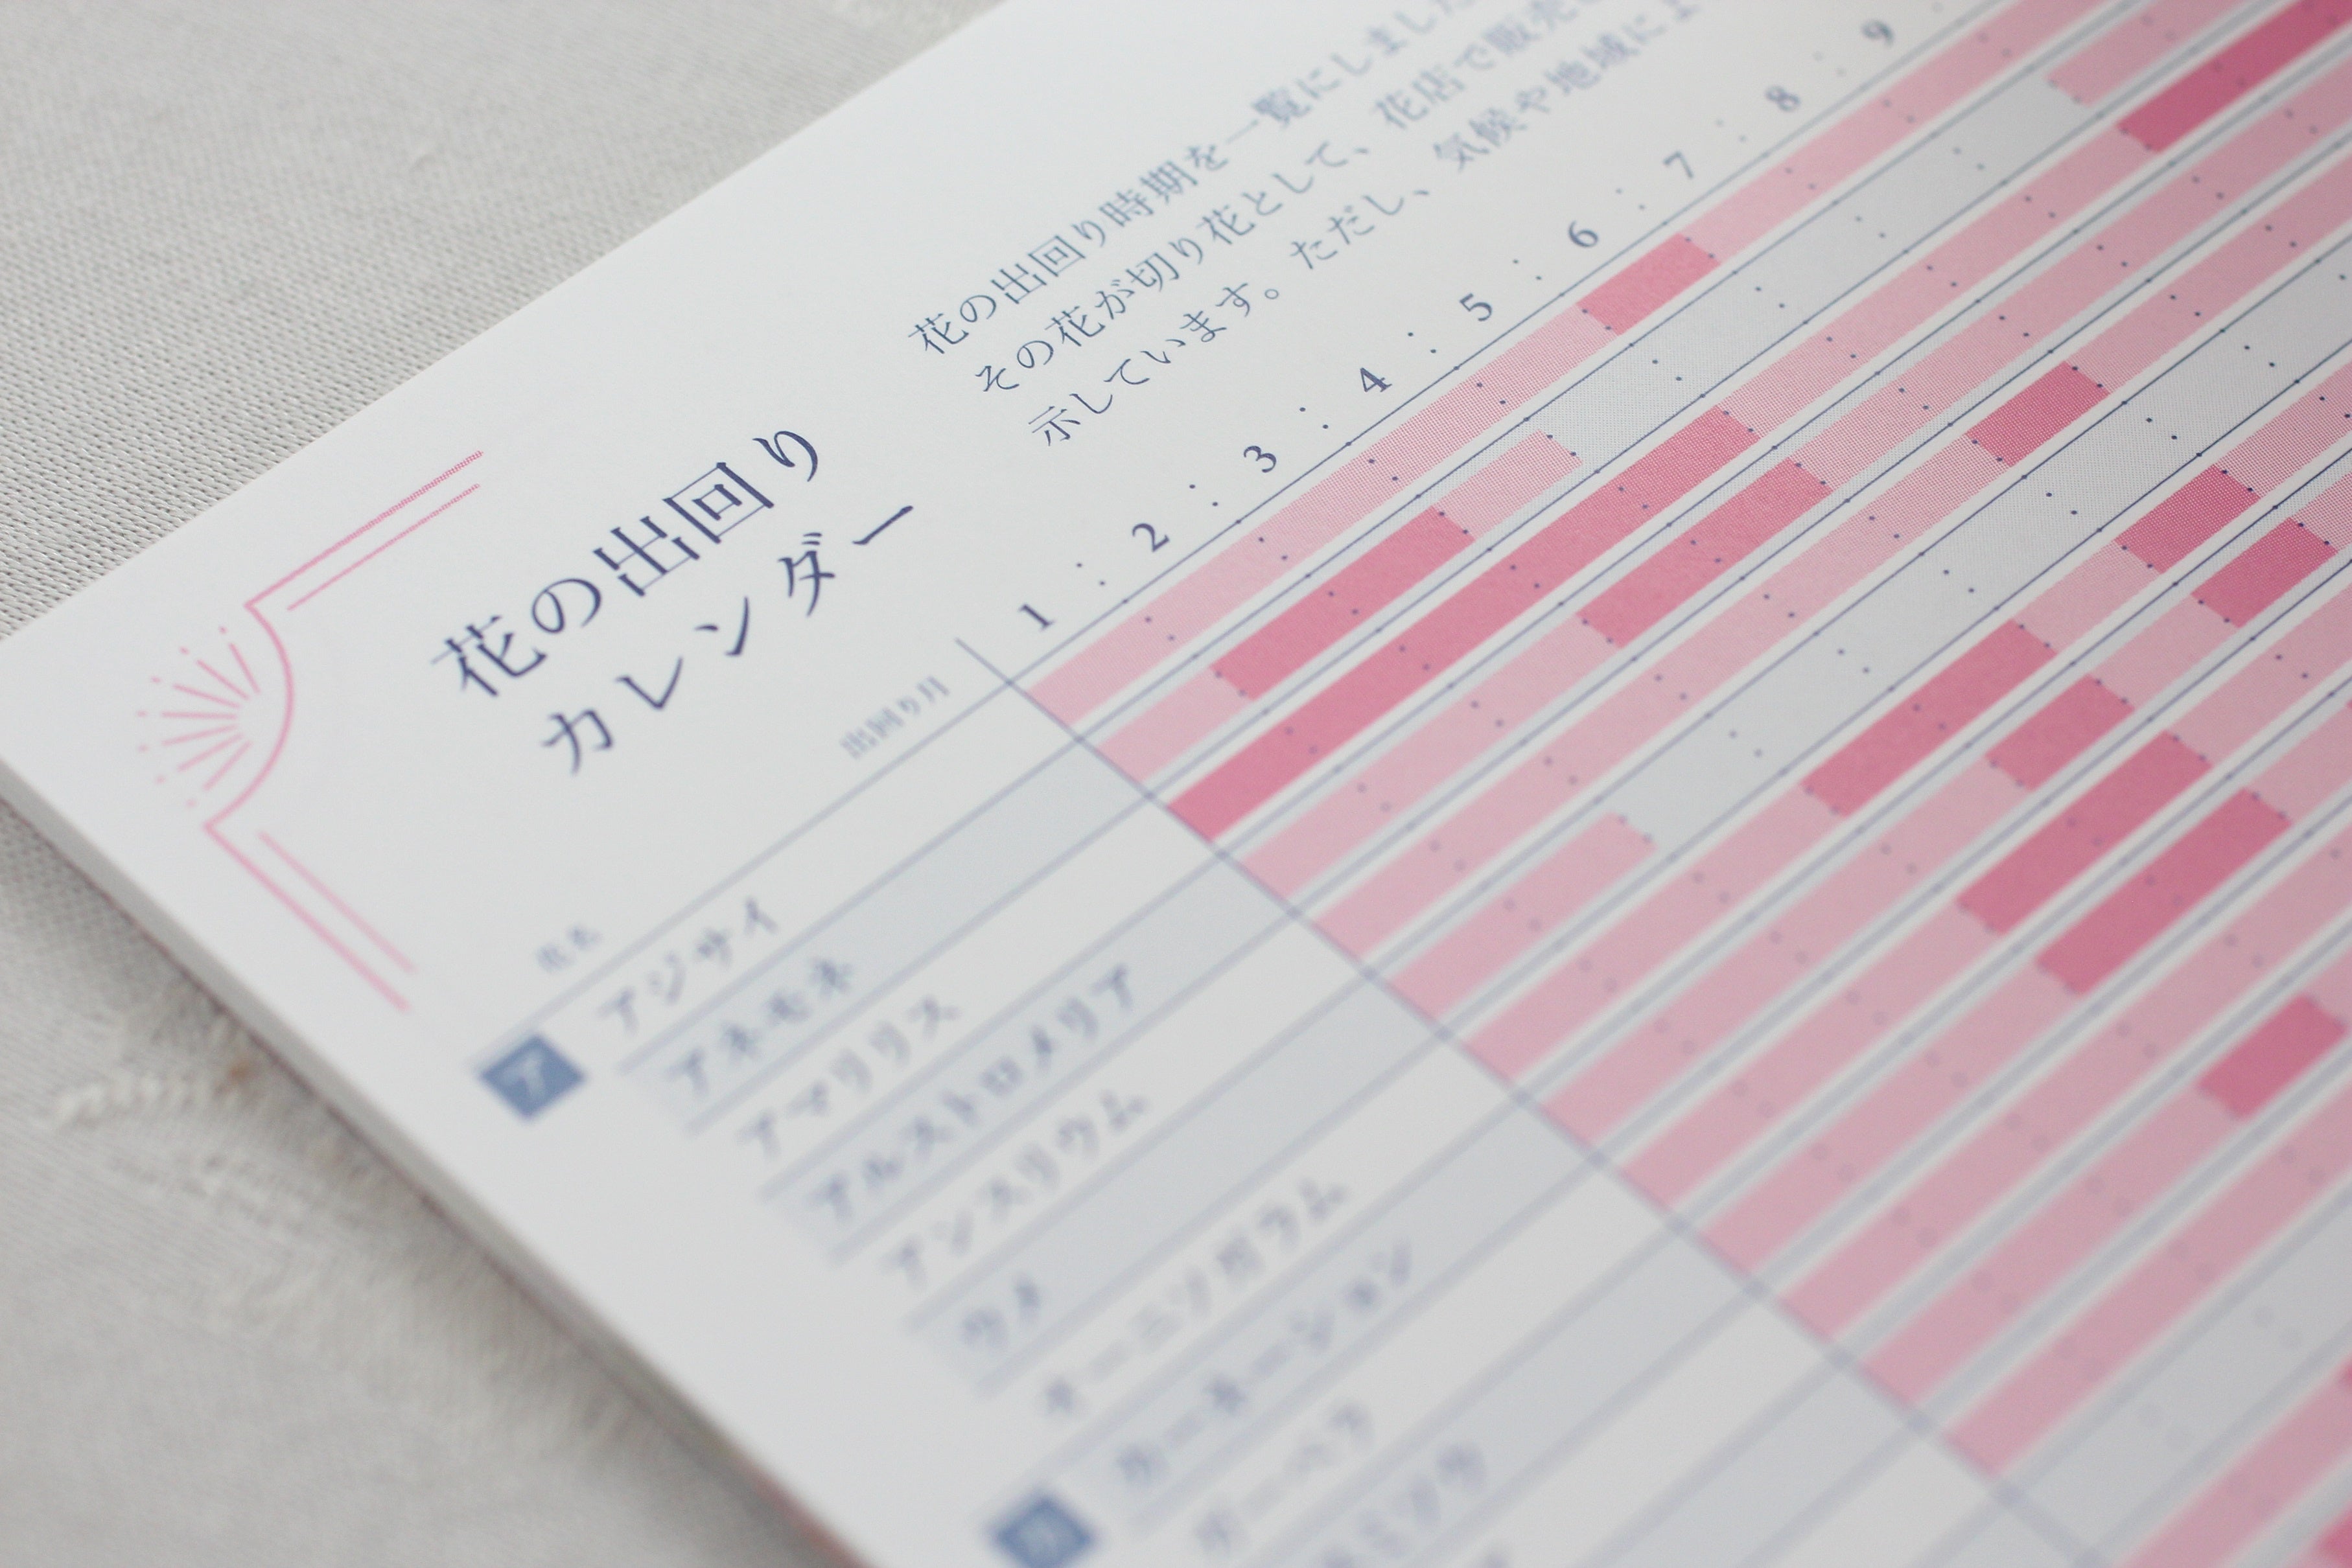 花の出回り
カレンダー
花の出回り時期を一覧にしました
その花が切り花として、花店で販売
示しています。ただし、気候や地域によ
出回り月
1 : 2 : 3 : 4 : 5 : 6 : 7 : 8 : 9
花名
ア
アジサイ
アネモネ
アマリリス
アルストロメリア
アンスリウム
ウメ
オーニソガラム
カ
カーネーション
ガーベラ